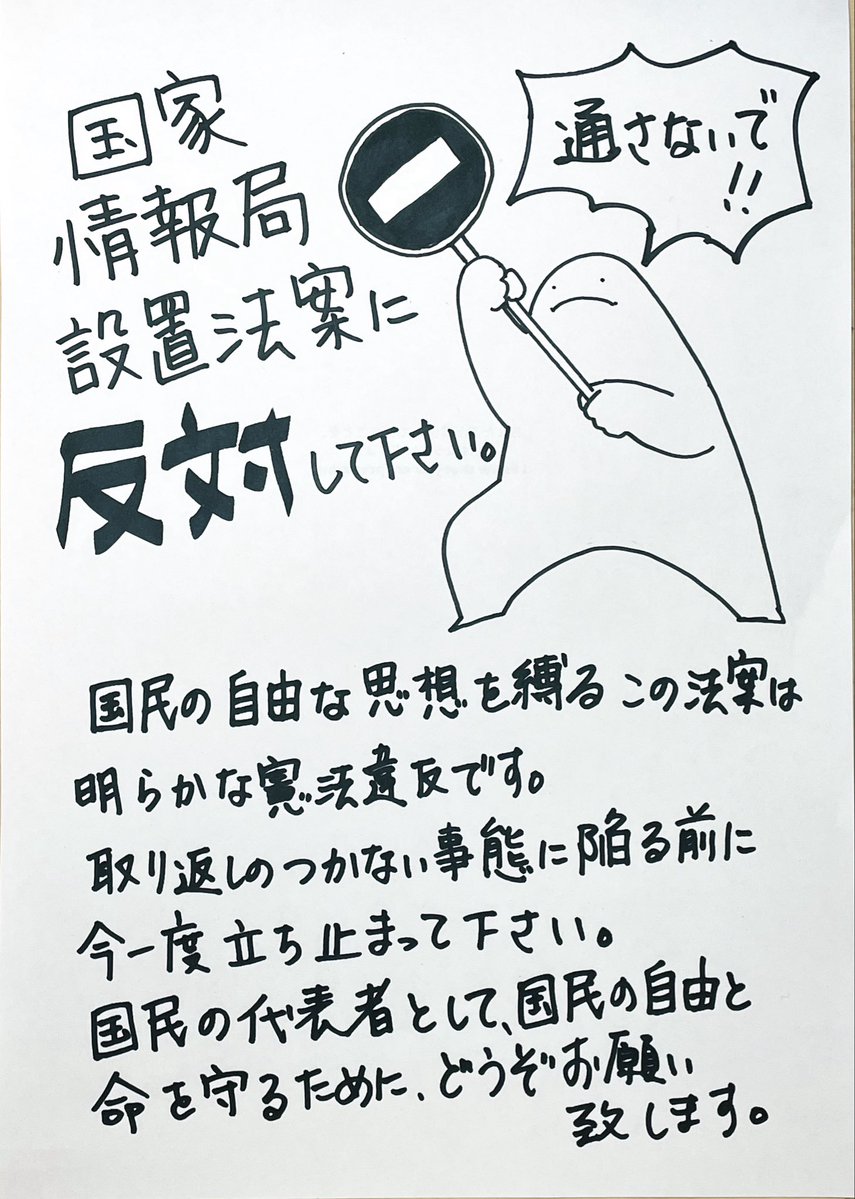 国家
情報局
設置法案に
反対して下さい。
通さないで
!!
国民の自由な思想を縛るこの法案は
明らかな憲法違反です。
取り返しのつかない事態に陥る前に
今一度立ち止まって下さい。
国民の代表者として、国民の自由と
命を守るために、どうぞお願い
致します。